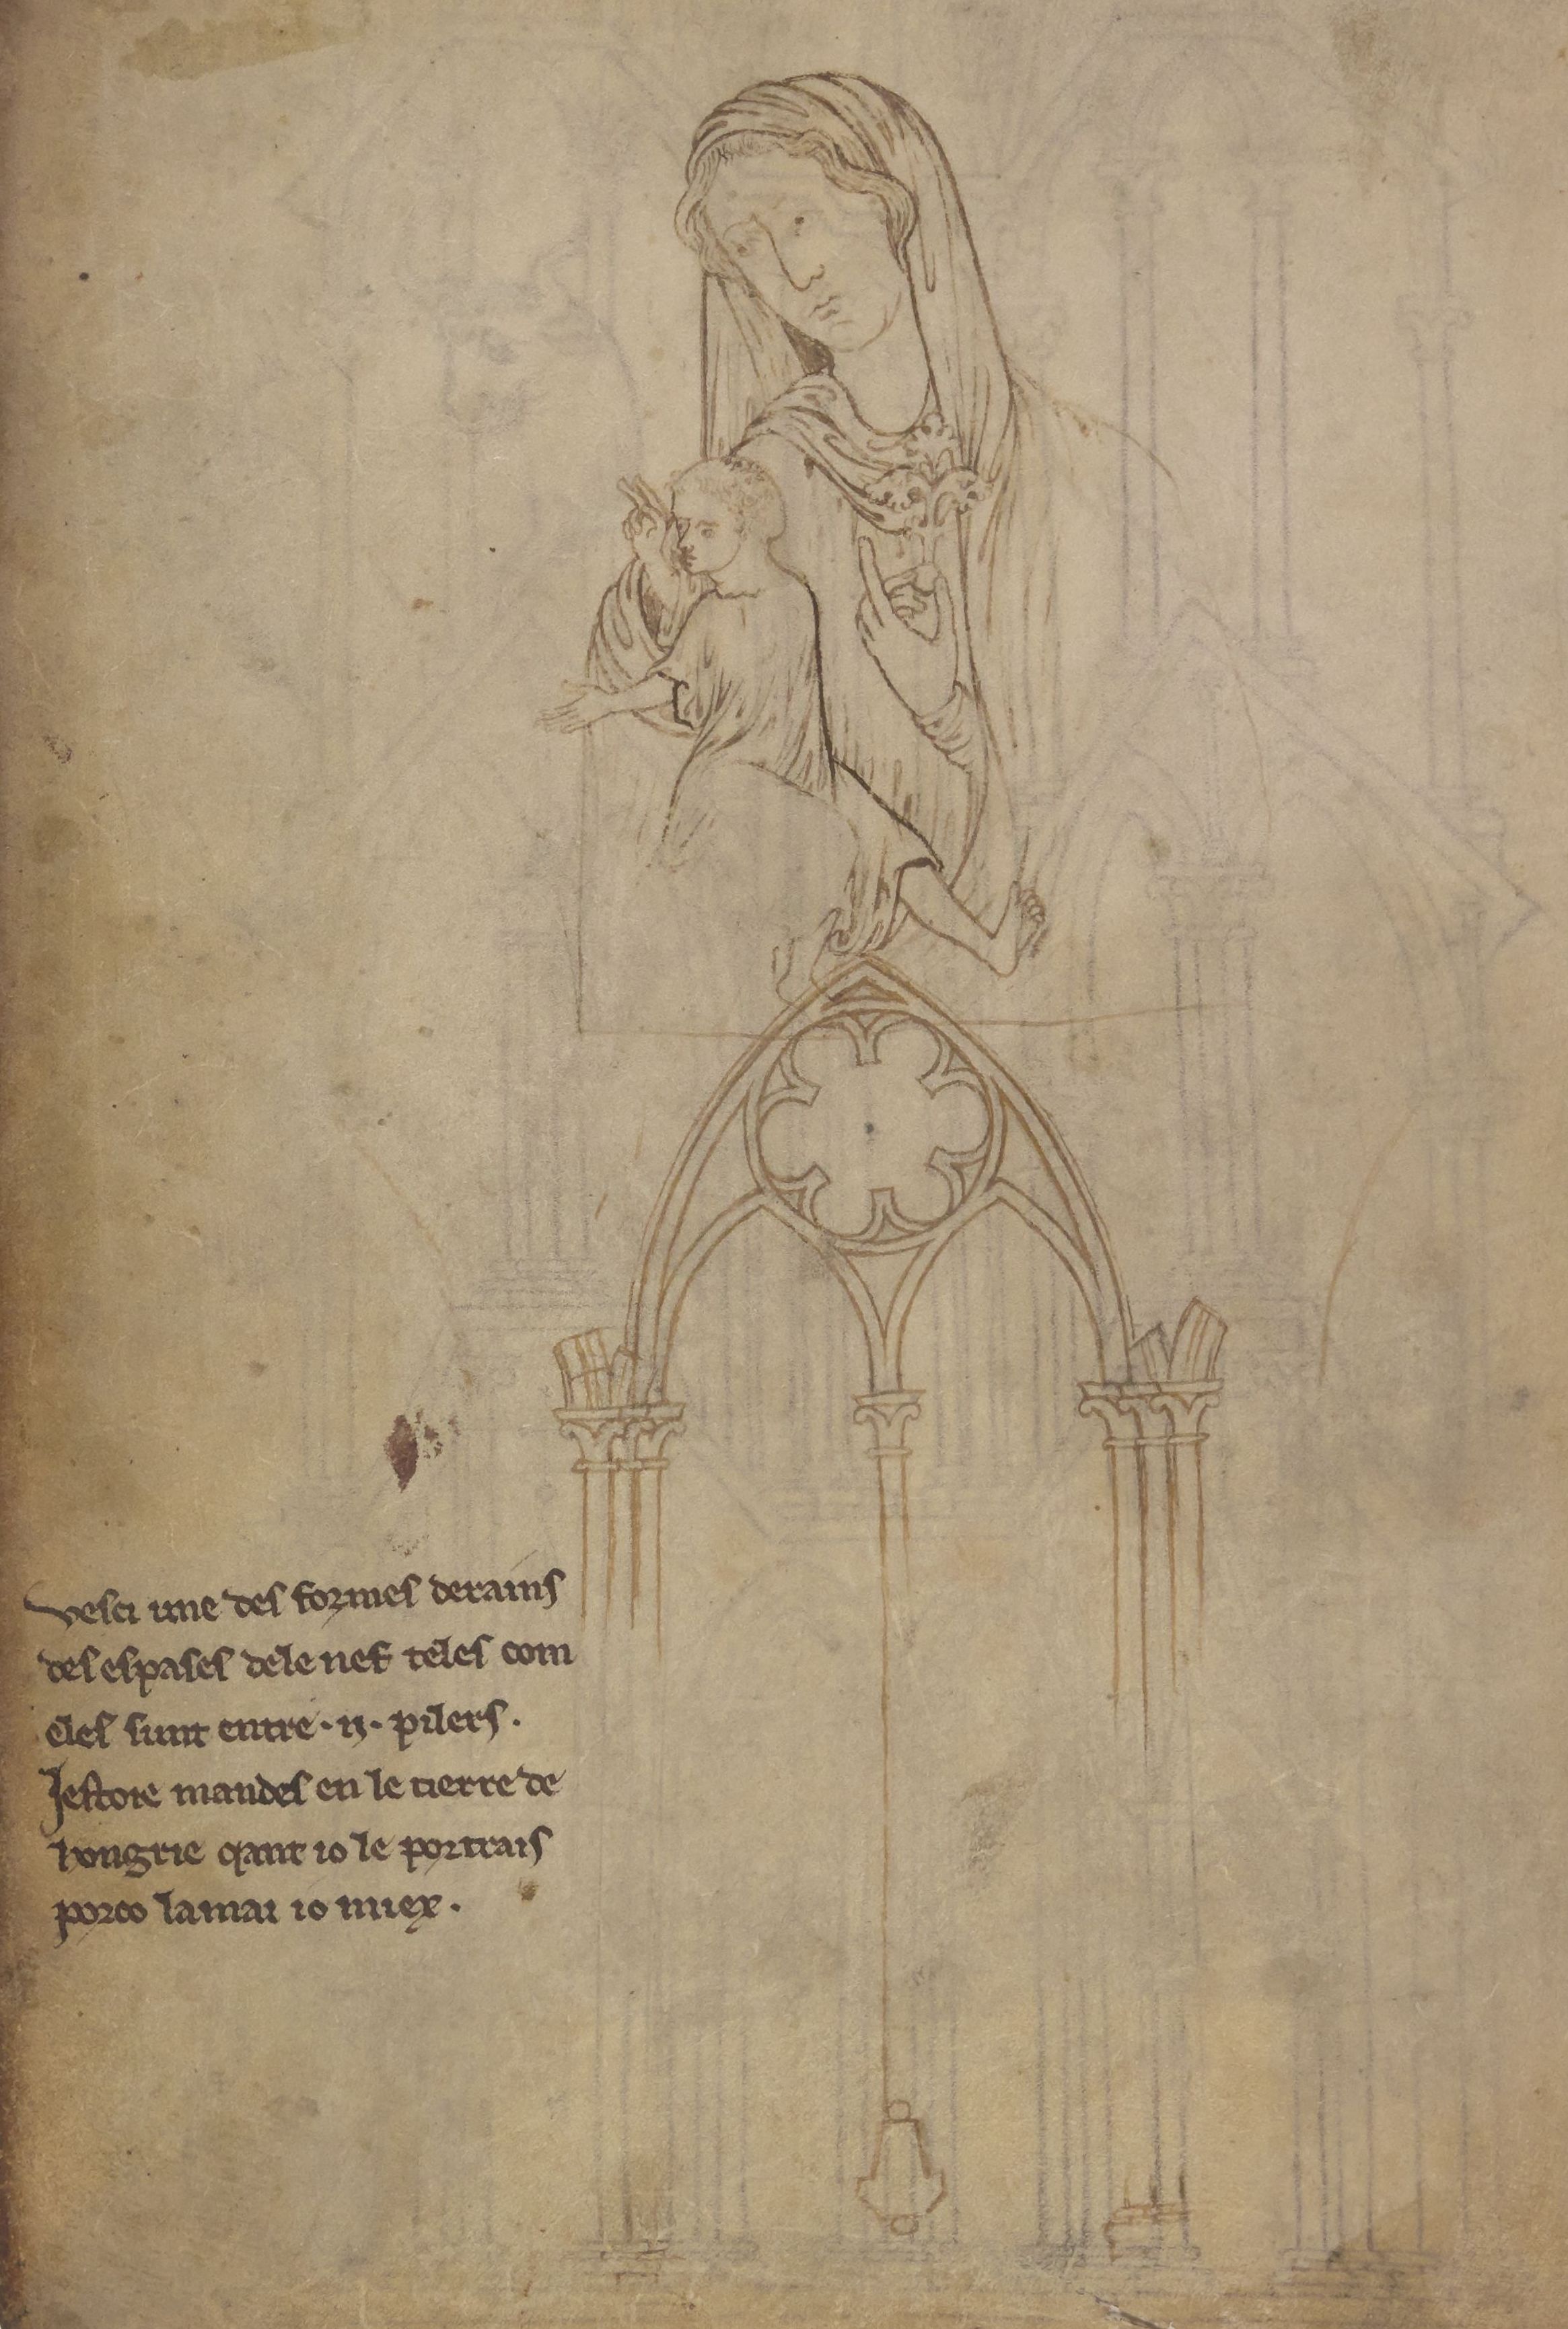 vesci une des formes de rains
des espases dele nef teles com
eles sunt entre · ij · pilers .
Jestoie mandes en le tierre de
hongrie qant io le portrais
porco lamai io miex .